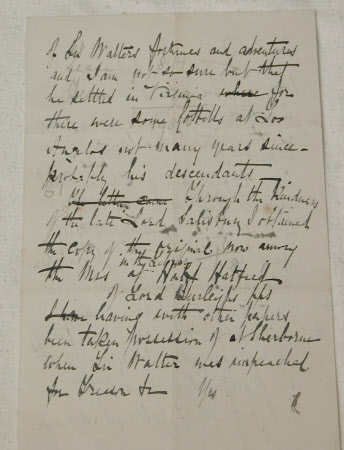 of Sir Walters fortunes and adventures
and I am not so sure but that
he settled in Virginia where for
there were some Cottells at Los
Angeles not many years since -
probably his descendants
Through the Kindness
of the late Lord Salisbury I obtained
the copy of the Original now among
the Mss at Hatf Hatfield
in the
of Lord Burleighs
having with other papers
been taken possession of at Sherborne
when Sir Walter was impeached
for Treason &c Yrs